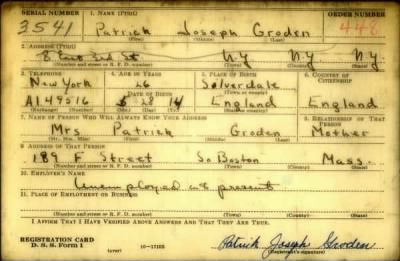 SERIAL NUMBER 1. NAME (Print) ORDER NUMBER
3541 Patrick Joseph Groden 448
(First) (Middle) (Last)
2. ADDRESS (Print)
8 East 3rd St N.Y. N.Y. N.Y.
(Number and street or R. F. D. number) (Town) (County) (State)
3. TELEPHONE 4. AGE IN YEARS 5. PLACE OF BIRTH 6. COUNTRY OF CITIZENSHIP
New York 26 Silverdale
DATE OF BIRTH (Town or county)
AL49516 5 28 14 England England
(Exchange) (No.) (Mo.) (Day) (Yr.) (State or country)
7. NAME OF PERSON WHO WILL ALWAYS KNOW YOUR ADDRESS 8. RELATIONSHIP OF THAT PERSON
Mrs Patrick Groden Mother
(Mr., Mrs., Miss) (First) (Middle) (Last)
9. ADDRESS OF THAT PERSON
189 F Street So Boston Mass.
(Number and street or R. F. D. number) (Town) (County) (State)
10. EMPLOYER'S NAME
Unemployed at present
11. PLACE OF EMPLOYMENT OR BUSINESS
(Number and street or R. F. D. number) (Town) (County) (State)
I AFFIRM THAT I HAVE VERIFIED ABOVE ANSWERS AND THAT THEY ARE TRUE.
REGISTRATION CARD
D. S. S. Form 1 (over) Patrick Joseph Groden
(Registrant's signature)